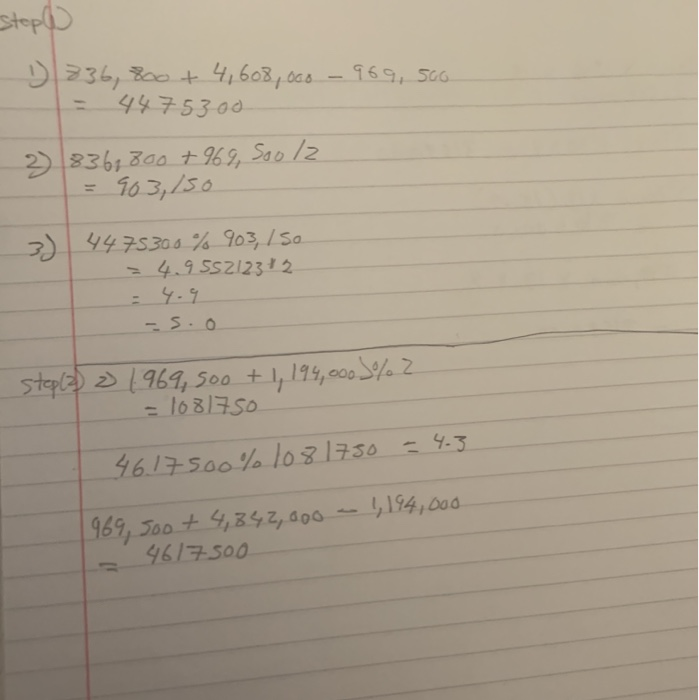 Step(1)
1) 836,800 + 4,608,000 - 969,500
= 4475300
2) 836,800 + 969,500/2
= 903,150
3) 4475300 % 903,150
= 4.9552123*2
= 4.9
= 5.0
Step(2) 2) (969,500 + 1,194,000)% 2
= 1081750
4617500 % 1081750 = 4.3
969,500 + 4,842,000 - 1,194,000
= 4617500